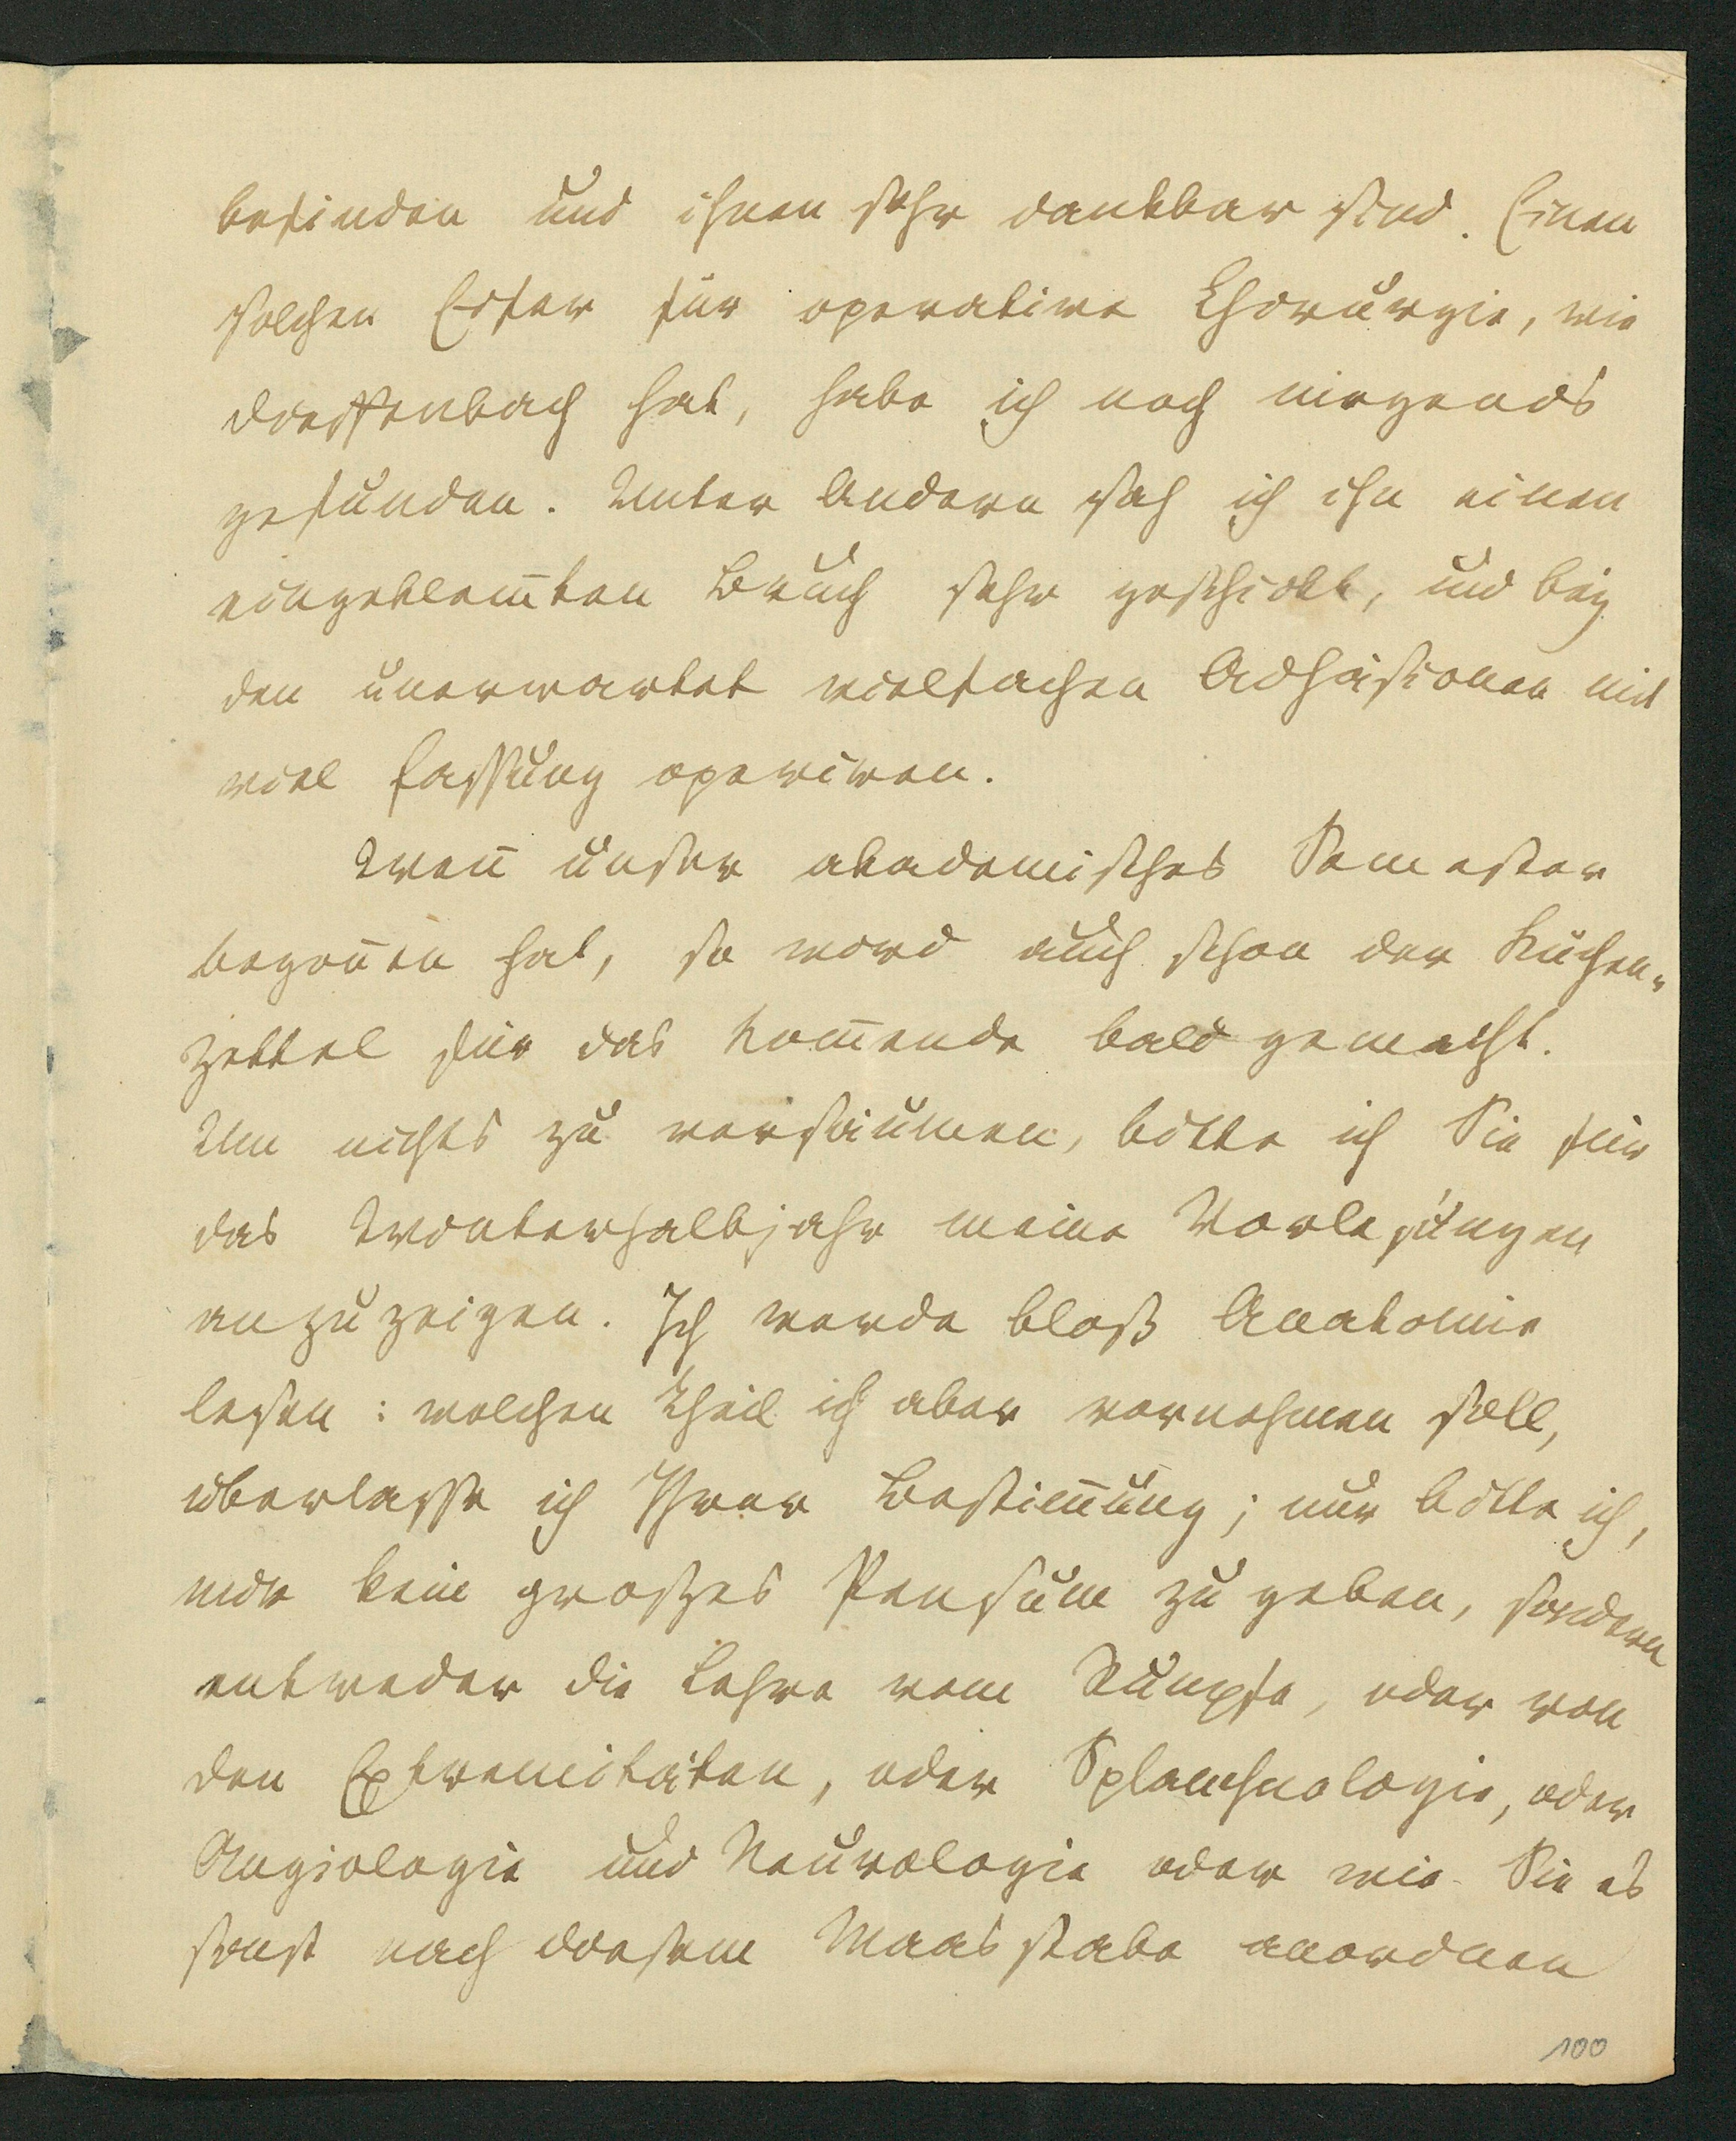 befinden und ihnen sehr dankbar sind. Einen
solchen Eifer für operative Chirurgie, wie
Dieffenbach hat, habe ich noch nirgends
gefunden. Unter Andern sah ich ihn einen
eingeklem̄ten Bruch sehr geschickt, und bey
den unerwartet vielfachen Adhäsionen mit
viel Fassung operiren.
Wen̄ unser akademisches Semester
begon̄en hat, so wird auch schon der Küchen-
zettel für das kom̄ende bald gemacht.
Um nichts zu versäumen, bitte ich Sie für
das Winterhalbjahr meine Vorlesungen
anzuzeigen. Ich werde bloß Anatomie
lesen: welchen Theil ich aber vornehmen soll,
überlasse ich Ihrer Bestim̄ung; nur bitte ich,
mir kein großes Pensum zu geben, sondern
entweder die Lehre vom Rumpfe, oder von
den Extremitäten, oder Splanchnologie, oder
Angiologie und Neurologie oder wie Sie es
sonst nach diesem Maasstabe anordnen
100